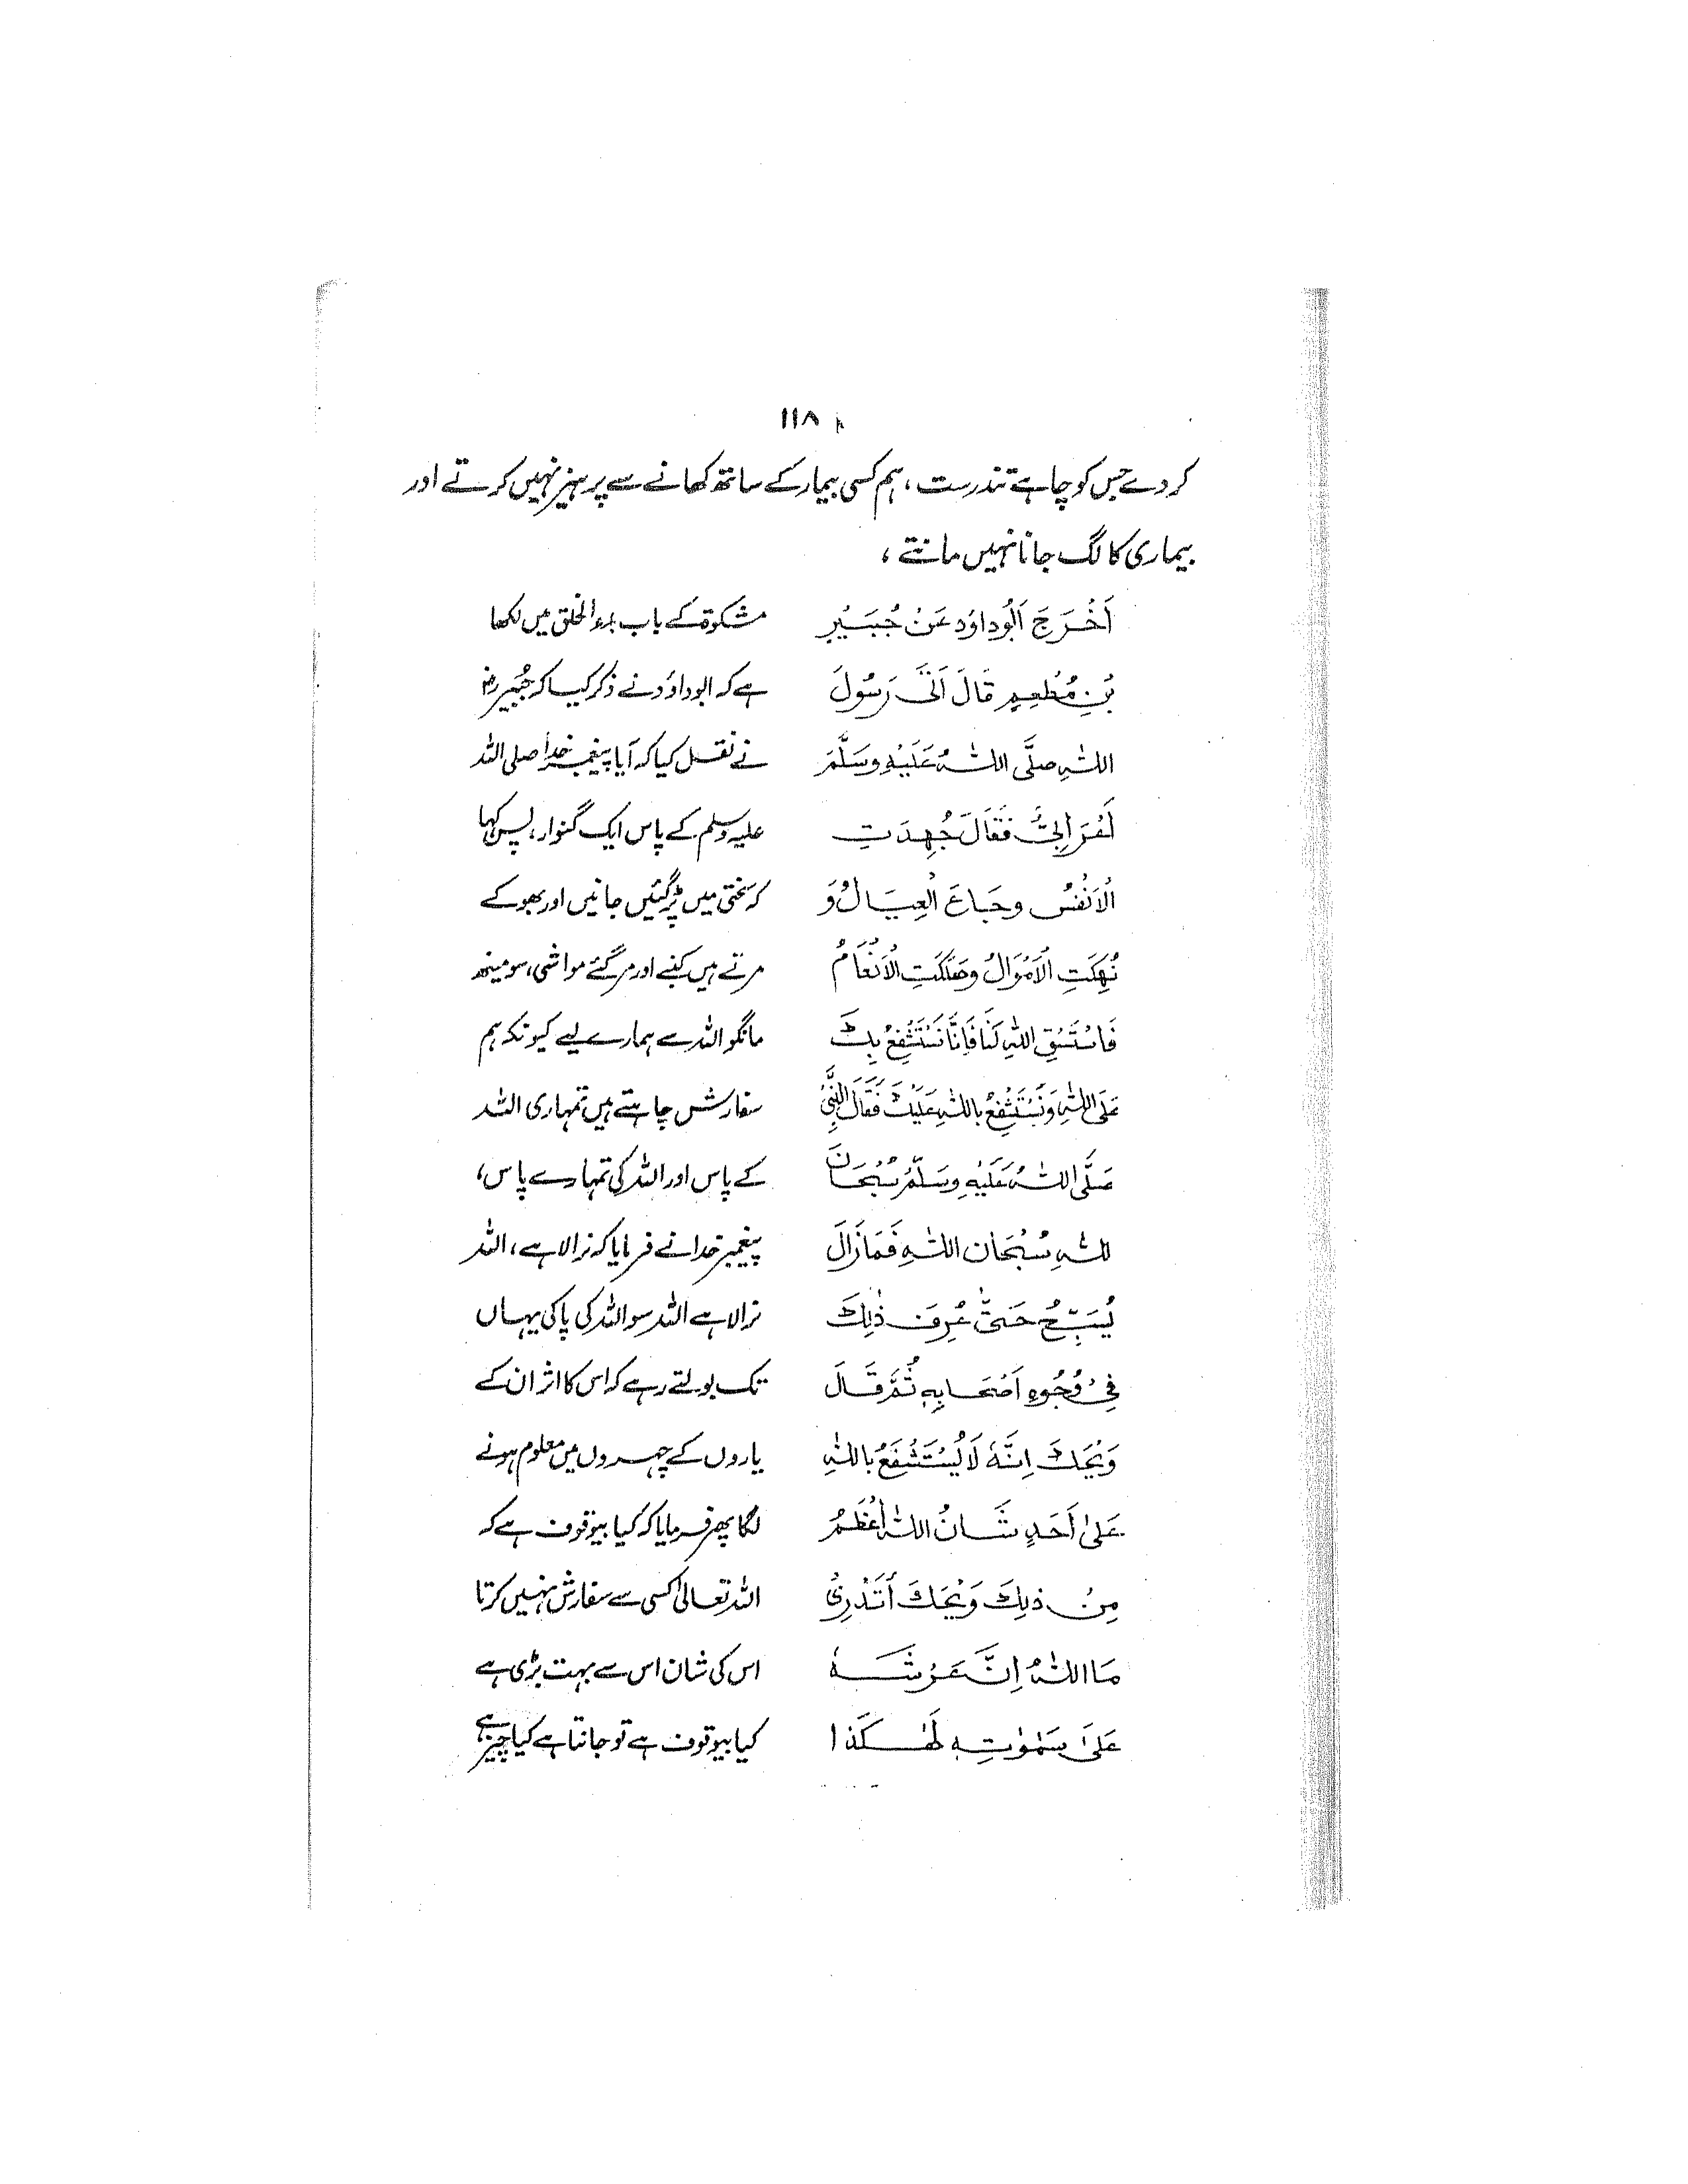 ۱۱۸
کر دے جس کو چاہے تندرست، ہم کسی بیمار کے ساتھ کھانے سے پرہیز نہیں کرتے اور
بیماری کا لگ جانا نہیں مانتے،
اَخْرَجَ اَبُوداوُد عَنْ جُبَيْرِ
بْنِ مُطْعِمٍ قَالَ اَتٰى رَسُولَ
اللّٰهِ صَلَّى اللّٰهُ عَلَيْهِ وَسَلَّمَ
اَعْرَابِيٌّ فَقَالَ جُهِدَتِ
الْاَنْفُسُ وَجَاعَ الْعِيَالُ وَ
نُهِكَتِ الْاَمْوَالُ وَهَلَكَتِ الْاَنْعَامُ
فَاسْتَسْقِ اللّٰهَ لَنَا فَاِنَّا نَسْتَشْفِعُ بِكَ
عَلَى اللّٰهِ وَنَسْتَشْفِعُ بِاللّٰهِ عَلَيْكَ فَقَالَ النَّبِيُّ
صَلَّى اللّٰهُ عَلَيْهِ وَسَلَّمَ سُبْحَانَ
اللّٰهِ سُبْحَانَ اللّٰهِ فَمَا زَالَ
يُسَبِّحُ حَتّٰى عُرِفَ ذٰلِكَ
فِيْ وُجُوهِ اَصْحَابِهٖ ثُمَّ قَالَ
وَيْحَكَ اِنَّهٗ لَا يُسْتَشْفَعُ بِاللّٰهِ
عَلٰى اَحَدٍ شَانُ اللّٰهِ اَعْظَمُ
مِنْ ذٰلِكَ وَيْحَكَ اَتَدْرِيْ
مَا اللّٰهُ اِنَّ عَرْشَهٗ
عَلٰى سَمٰوٰتِهٖ لَهٰكَذَا
مشکوٰۃ کے باب بدء الخلق میں لکھا
ہے کہ ابوداؤد نے ذکر کیا کہ جُبیر رض
نے نقل کیا کہ آیا پیغمبر خدا صلی اللہ
علیہ وسلم کے پاس ایک گنوار، پس کہا
کہ سختی میں پڑ گئیں جانیں اور بھوکے
مرتے ہیں کنبے اور مر گئے مواشی، سو مینھ
مانگو اللہ سے ہمارے لیے کیونکہ ہم
سفارش چاہتے ہیں تمہاری اللہ
کے پاس اور اللہ کی تمہارے پاس،
پیغمبر خدا نے فرمایا کہ نرالا ہے، اللہ
نرالا ہے اللہ سو اللہ کی پاکی یہاں
تک بولتے رہے کہ اس کا اثر ان کے
یاروں کے چہروں میں معلوم ہونے
لگا پھر فرمایا کہ کیا بیوقوف ہے کہ
اللہ تعالیٰ کسی سے سفارش نہیں کرتا
اس کی شان اس سے بہت بڑی ہے
کیا بیوقوف ہے تو جانتا ہے کیا چیز ہے